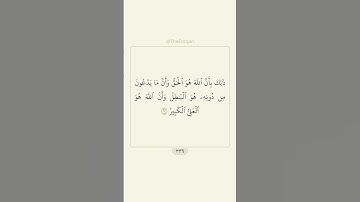 @TheFurqan
ذَٰلِكَ بِأَنَّ ٱللَّهَ هُوَ ٱلْحَقُّ وَأَنَّ مَا يَدْعُونَ
مِن دُونِهِۦ هُوَ ٱلْبَٰطِلُ وَأَنَّ ٱللَّهَ هُوَ
ٱلْعَلِىُّ ٱلْكَبِيرُ
٣٣٩